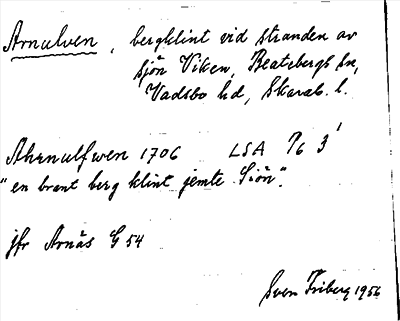 Arnulven, bergklint vid stranden av
sjön Viken, Beatebergs sn,
Vadsbo hd, Skarab. l.
Ahrnulfwen 1706 LSA P6 3¹
"en brant berg klint jemte Siön".
jfr Arnäs G 54
Sven Friberg 1956